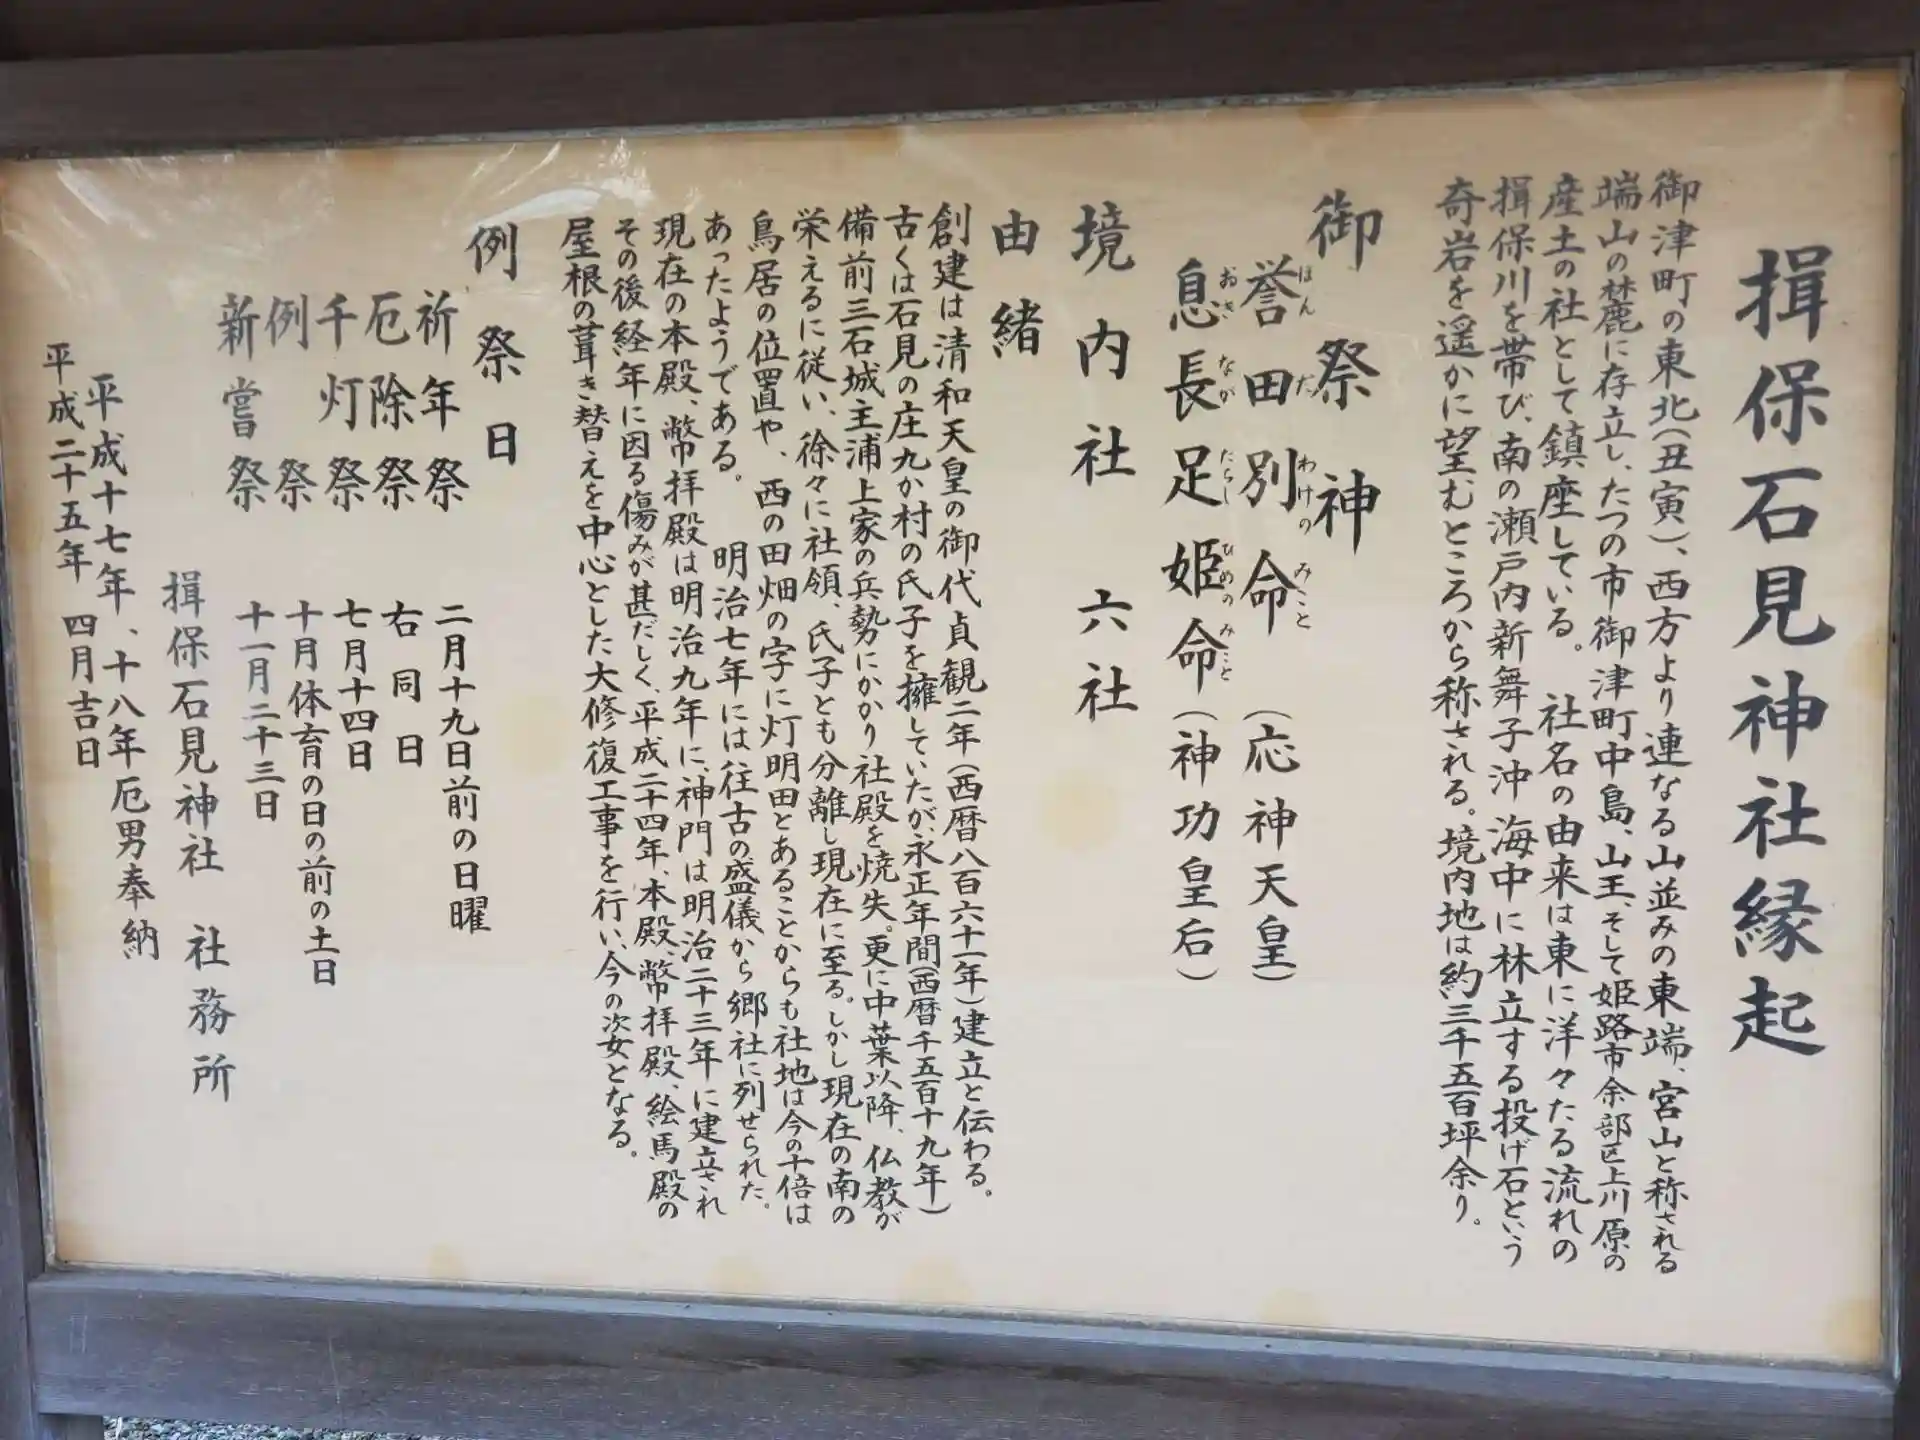 揖保石見神社縁起
御津町の東北(丑寅)、西方より連なる山並みの東端、宮山と称される
端山の麓に存立し、たつの市御津町中島、山王、そして姫路市余部区上川原の
産土の社として鎮座している。 社名の由来は東に洋々たる流れの
揖保川を帯び、南の瀬戸内新舞子沖海中に林立する投げ石という
奇岩を遥かに望むところから称される。境内地は約三千五百坪余り。
御祭神
誉田別命(応神天皇)
ほんだわけのみこと
息長足姫命(神功皇后)
おきながたらしひめのみこと
境内社 六社
由緒
創建は清和天皇の御代貞観二年(西暦八百六十一年)建立と伝わる。
古くは石見の庄九か村の氏子を擁していたが、永正年間(西暦千五百十九年)
備前三石城主浦上家の兵勢にかかり社殿を焼失。更に中葉以降、仏教が
栄えるに従い、徐々に社領、氏子とも分離し現在に至る。しかし現在の南の
鳥居の位置や、西の田畑の字に灯明田とあることからも社地は今の十倍は
あったようである。 明治七年には往古の盛儀から郷社に列せられた。
現在の本殿、幣拝殿は明治九年に、神門は明治二十三年に建立され
その後経年に因る傷みが甚だしく、平成二十四年、本殿、幣拝殿、絵馬殿の
屋根の葺き替えを中心とした大修復工事を行い、今の次女となる。
例祭日
祈年祭 二月十九日前の日曜
厄除祭 右同日
千灯祭 七月十四日
例祭 十月体育の日の前の土日
新嘗祭 十一月二十三日
揖保石見神社 社務所
平成十七年、十八年厄男奉納
平成二十五年 四月吉日